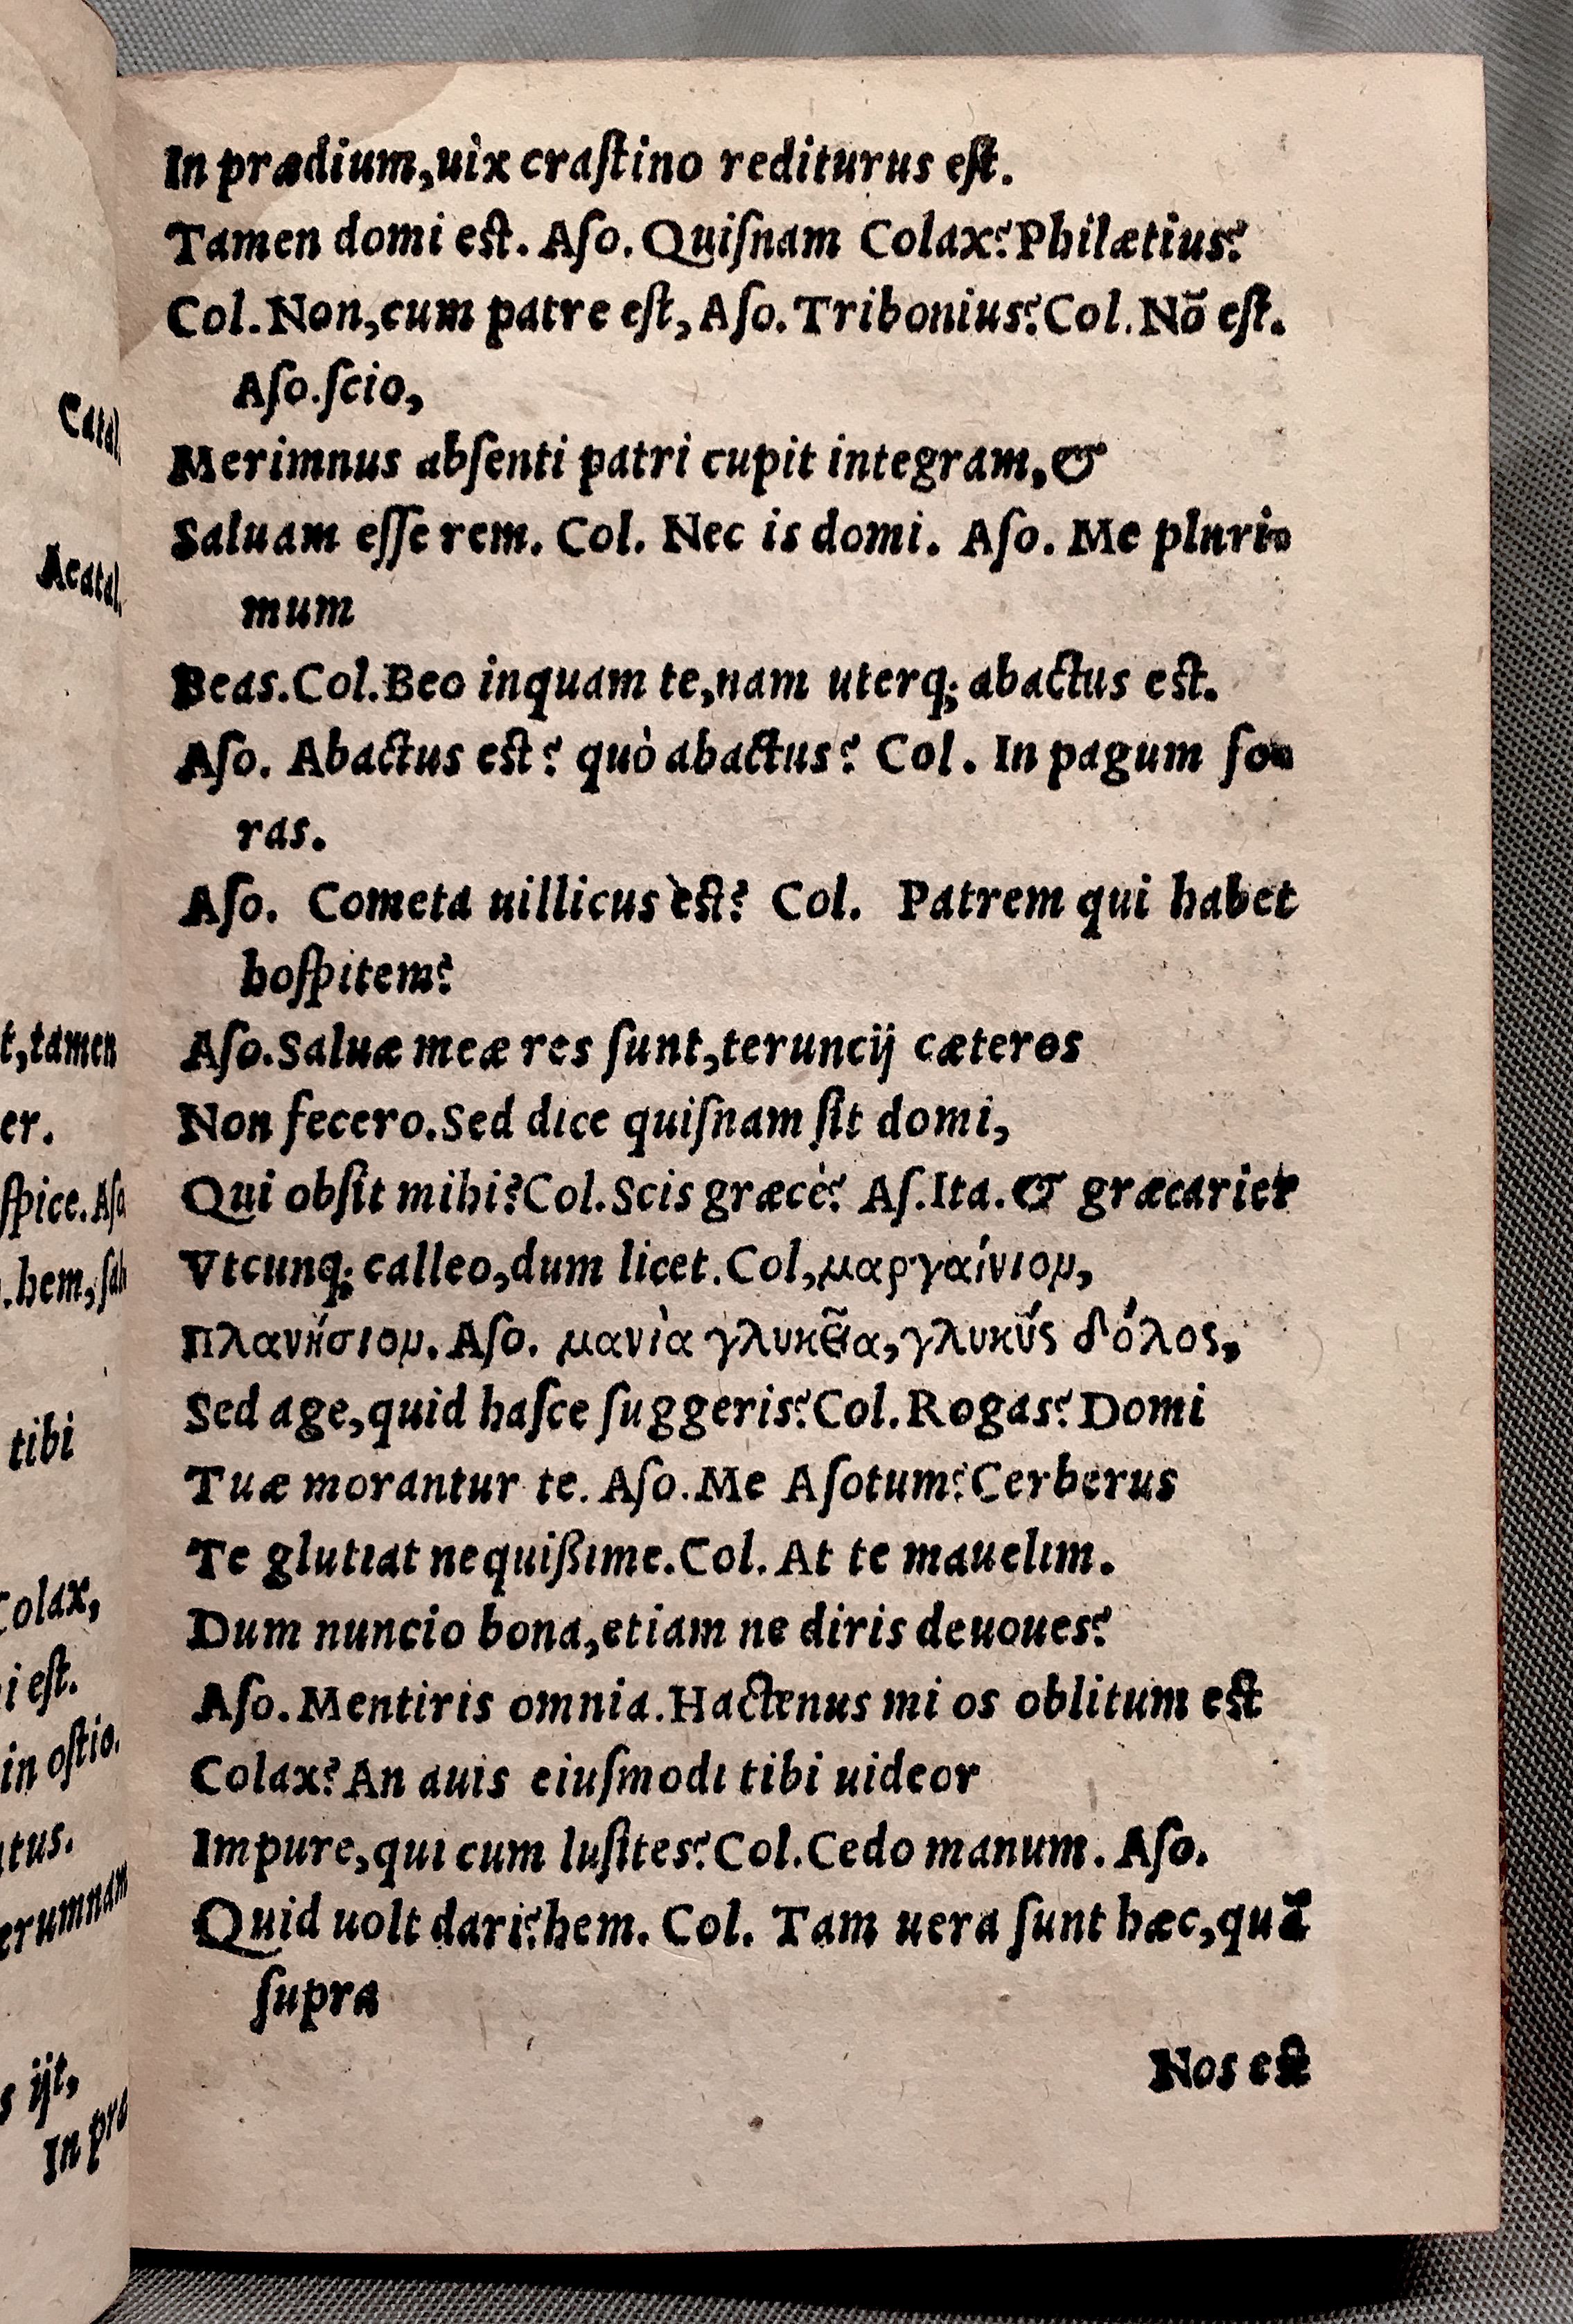 In prædium,uix craſtino rediturus eſt.
Tamen domi eſt. Aſo. Quiſnam Colax? Philætius?
Col. Non,cum patre eſt, Aſo. Tribonius? Col. Nō eſt.
Aſo. ſcio,
Merimnus abſenti patri cupit integram,&
Saluam eſſe rem. Col. Nec is domi. Aſo. Me pluri-
mum
Beas. Col. Beo inquam te,nam uterq; abactus eſt.
Aſo. Abactus eſt? quò abactus? Col. In pagum fo-
ras.
Aſo. Cometa uillicus èſt? Col. Patrem qui habet
hoſpitem?
Aſo. Saluæ meæ res ſunt,teruncij cæteros
Non fecero. Sed dice quiſnam ſit domi,
Qui obſit mihi? Col. Scis græcè? Aſ. Ita. & græcarier
Vtcunq; calleo,dum licet. Col, μαργαίνιομ,
πλανήσιομ. Aſo. μανία γλυκεῖα,γλυκύς δόλος,
Sed age,quid haſce ſuggeris? Col. Rogas? Domi
Tuæ morantur te. Aſo. Me Aſotum? Cerberus
Te glutiat nequißime. Col. At te mauelim.
Dum nuncio bona,etiam ne diris deuoues?
Aſo. Mentiris omnia. Hactenus mi os oblitum eſt
Colax? An auis eiuſmodi tibi uideor
Impure,qui cum luſites? Col. Cedo manum. Aſo.
Quid uolt dari? hem. Col. Tam uera ſunt hæc,quā
ſupra
Nos eſt
Catal.
Acatal.
t,tamen
er.
ſpice. Aſo
.hem,ſal
tibi
Colax,
i eſt.
in oſtio.
tus.
erumnam
s ijt,
In præ